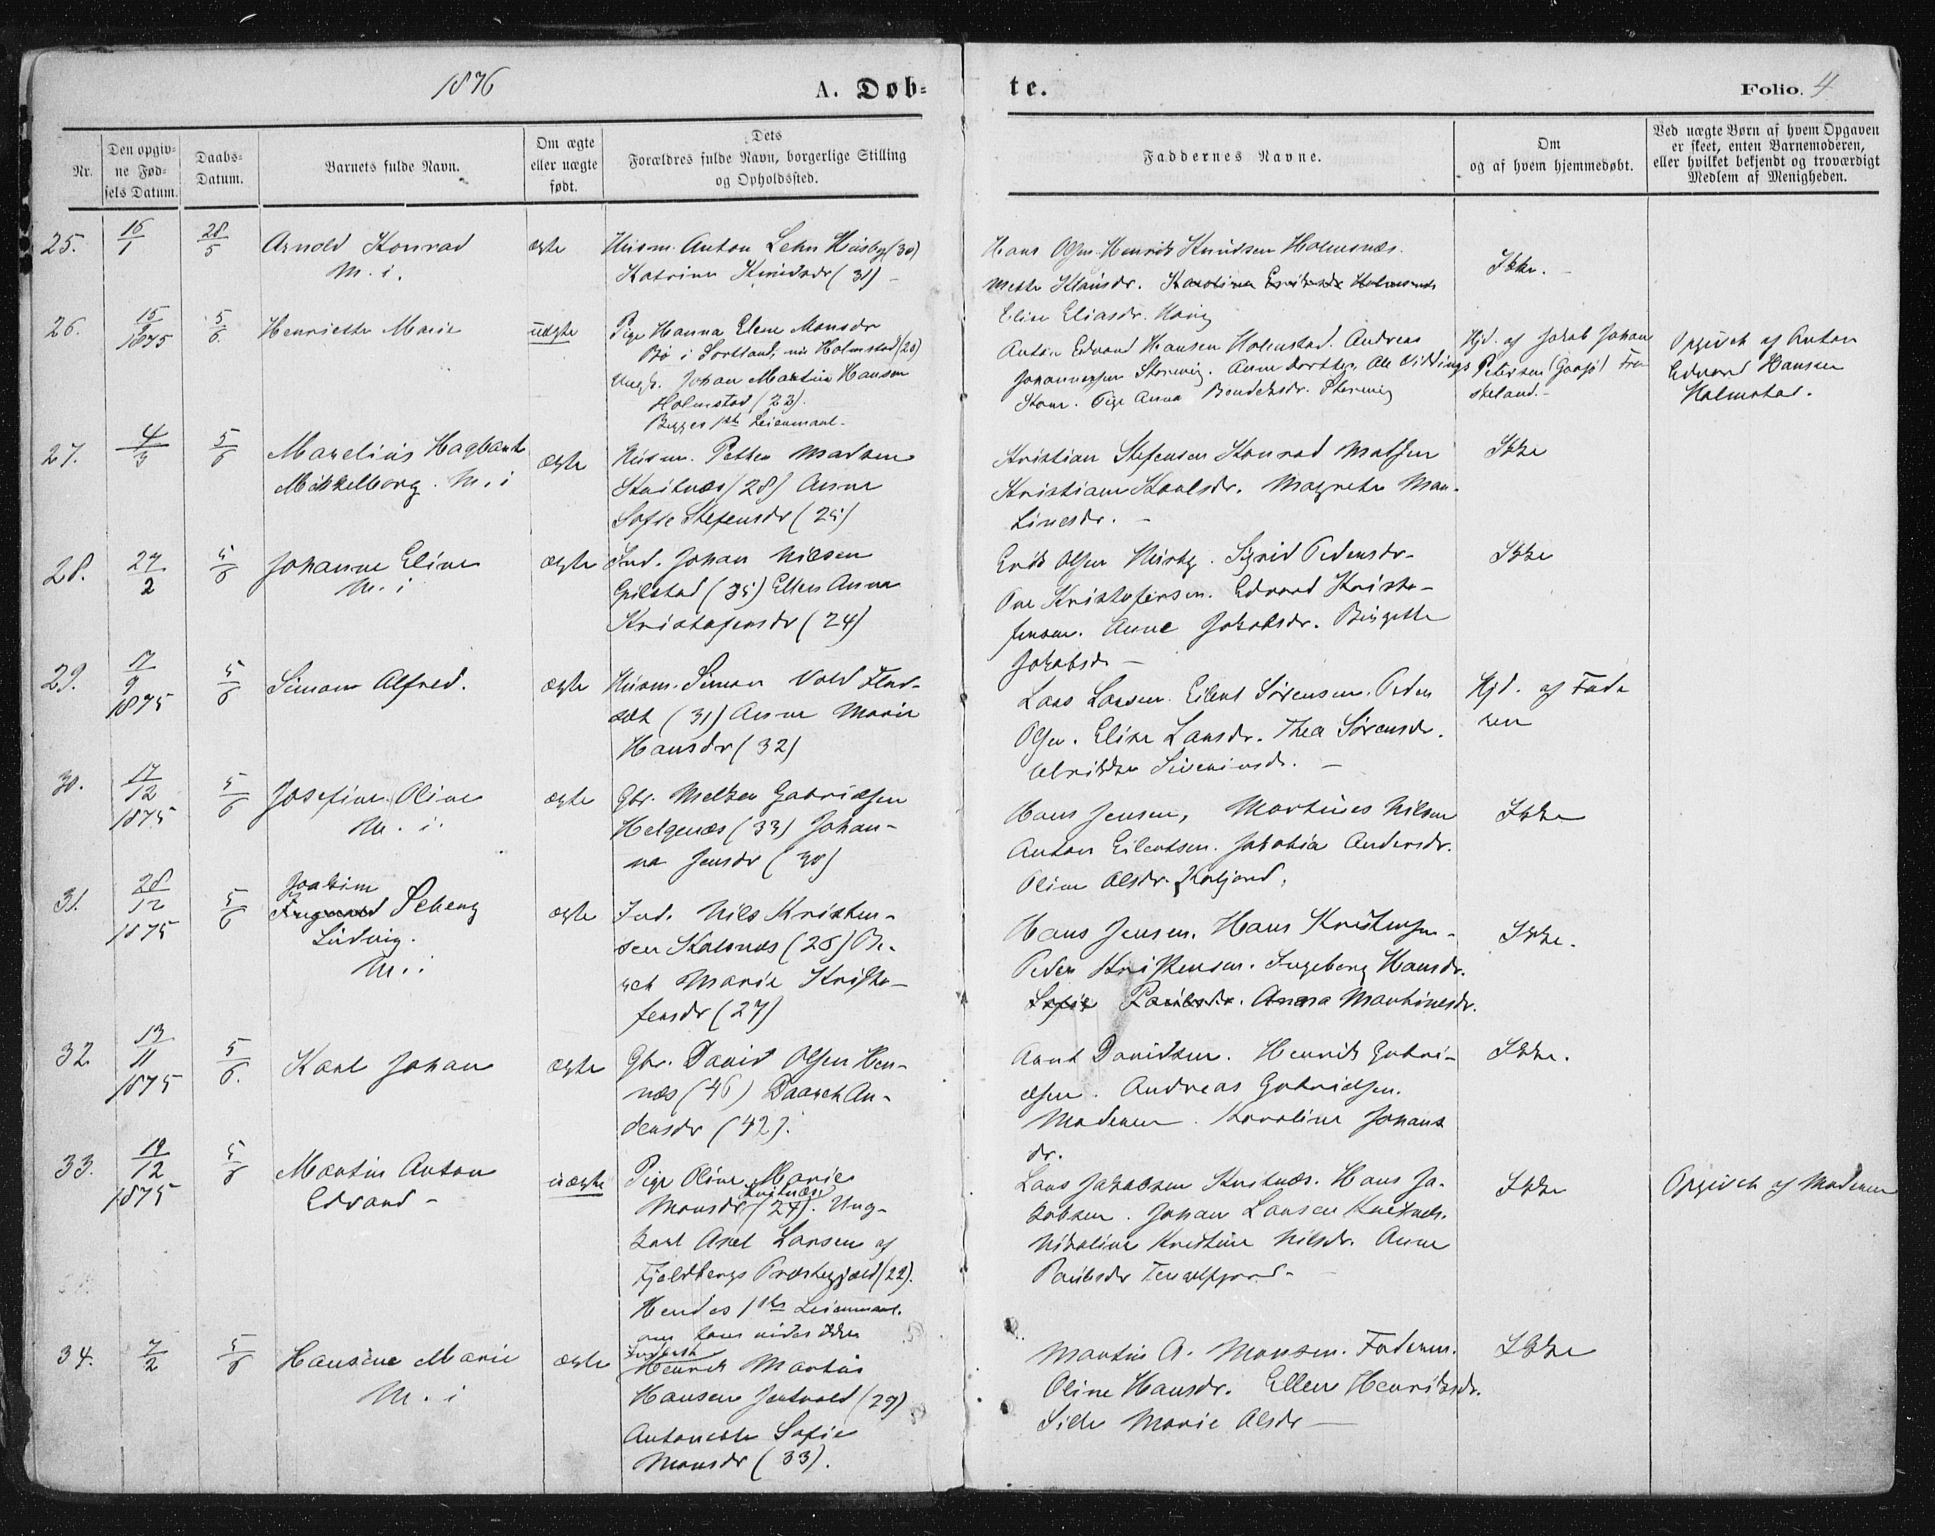 1876
A. Døb-
te.
Folio. 4
Nr.
Den opgiv-
ne Fød-
sels Datum.
Daabs-
Datum.
Barnets fulde Navn.
Om ægte
eller uægte
født.
Dets
Forældres fulde Navn, borgerlige Stilling
og Opholdssted.
Faddernes Navne.
Om
og af hvem hjemmedøbt.
Ved uægte Børn af hvem Opgaven
er skeet, enten Barnemoderen,
eller hvilket bekjendt og troværdigt
Medlem af Menigheden.
25.
16/1
28/5
Arnold Konrad
M. i.
ægte
Husm. Anton Husby (30)
Katrine (31) -
Hans Olsen Henrik Knudsen Holmsnæs.
Mette Klausdr. Karoline Holmsnæs
Elise Eliasdr.
Ikke. -
26.
15/9 1875
5/6
Henriette Marie
uægte
Pige Hanna Elene Monsdr
Bø i Sortland, Holmstad (20)
Ungk. Johan Martin Hansen
Holmstad (23).
Begges 1ste Leiermaal.
Anton Edvard Hansen Holmstad. Andreas
Johannessen. Anne Dorthea
Pige Anna Bendeksdr.
Hjd. af Jakob Johan
Petersen
Opgivet af Anton
Edvard Hansen
Holmstad.
27.
4/3
5/6
Marelius Hagbart
Mikkelborg. M. i
ægte
Husm. Petter Madsen
(28) Anne
Sofie Stefensdr (25)
Kristian Stefensen Konrad Matsen
Kristiane. Magrete Mar-
tinesdr. -
Ikke
28.
27/2
5/6
Johanne Eline
M. i
ægte
Ind. Johan Nilsen
(35) Ellen Anna
Kristofersdr (24)
Erik Olsen Husby. Sigrid Pedersdr-
Ole Kristofersen. Edvard Kristo-
fersen. Anne Jakobsdr. Birgitte
Jakobsdr -
Ikke
29.
17/9 1875
5/6
Simon Alfred.
ægte
Husm. Simon Vold Flat-
set (31) Anne Marie
Hansdr (32)
Lars Larsen. Eilert Sørensen. Peder
Olsen. Elise Larsdr. Thea Sørensdr.
Ulrikke Sivertinsdr. -
Hjd. af Fade
ren
30.
17/12 1875
5/6
Josefine Oline
M. i.
ægte
Gbr. Meltzer Gabrielsen
Helgenæs (33) Johan-
na Jensdr (30)
Hans Jensen, Martines Nilsen
Anton Eilertsen. Jakobia Andersdr.
Oline Olsdr.
Ikke
31.
28/12 1875
5/6
Joakim
Scheng
Ludvig.
M. i
ægte
Ind. Nils Kristen-
sen (26) Be-
ret Marie Kristo-
fersdr (27)
Hans Jensen. Hans Kristensen-
Peder Kristensen. Ingeborg Hansdr.
Sofie Paulsdr. Anna Martinesdr.
Ikke.
32
13/11 1875
5/6.
Karl Johan
ægte
Gbr. David Olsen Hen-
næs (46) An-
dersdr (42).
Arnt Davidsen. Henrik Gabri-
elsen. Andreas Gabrielsen.
Moderen. Karoline Johans
dr.
Ikke.
33.
19/12 1875
5/6
Martin Anton
Edvard -
uægte
Pige Oline Marie
Monsdr (24). Ung-
karl Axel Larsen af
Fjeldbergs Præstegjæld (22).
Hendes 1ste Leiermaal.
om hans vides ikke
Lars Jakobsen. Hans Ja-
kobsen. Johan Larsen
Nikoline Kristine Nilsdr. Anne
Paulsdr -
Ikke
Opgivet af Moderen
34.
7/2
5/6
Hansine Marie
M. i
ægte
Henrik Martin
Hansen (29)
Antonette Sofie
Monsdr (33).
Martin A. Monsen. Faderen.
Oline Hansdr. Ellen Henriksdr.
Marie Olsdr -
Ikke